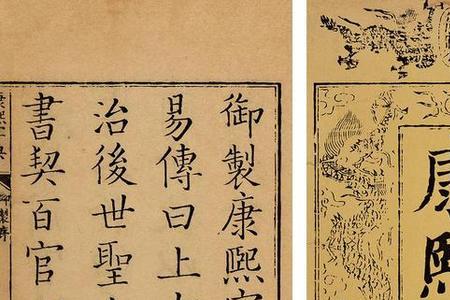 御製康熙字
易傳曰上
治後世聖
書契百官
康熙